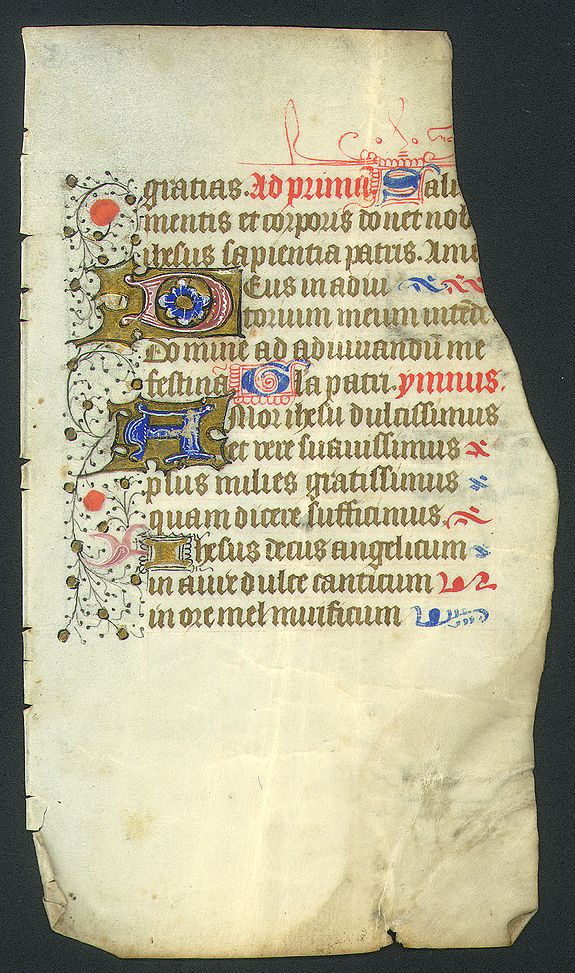 gratias. Ad primā Salu
mentis et corporis donet nob
ihesus sapientia patris. Ame
Deus in adiu
torium meum intēd
Domine ad adiuuandū me
festinā Gla patri. ymnus.
Amor ihesu dulcissimus
et vere suauissimus
plus milies gratissimus
quam dicere sufficimus.
Ihesus decus angelicum
in aure dulce canticum
in ore mel mirificum